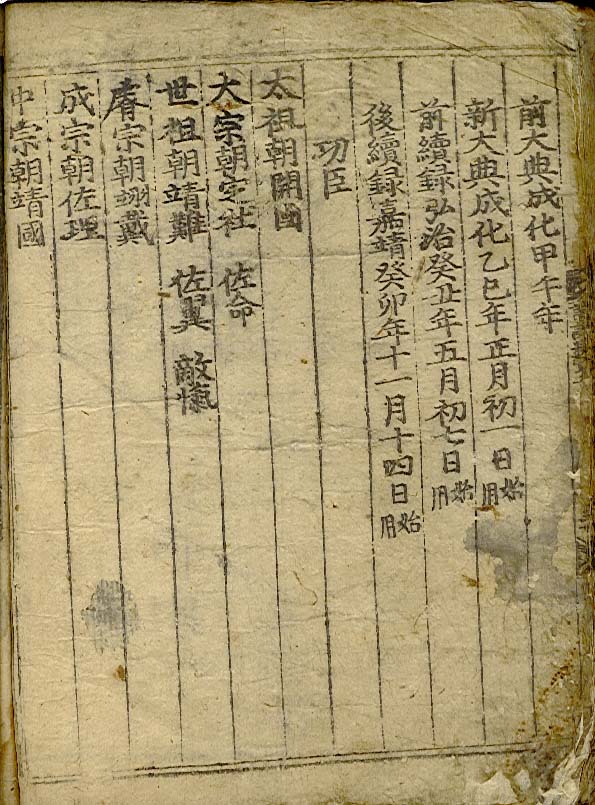 前大典成化甲午年
新大典成化乙巳年正月初一日始用
前續録弘治癸丑年五月初七日始用
後續録嘉靖癸卯年十一月十四日始用
功臣
太祖朝開國
大宗朝定社 佐命
世祖朝靖難 佐翼 敵愾
睿宗朝翊戴
成宗朝佐理
中宗朝靖國